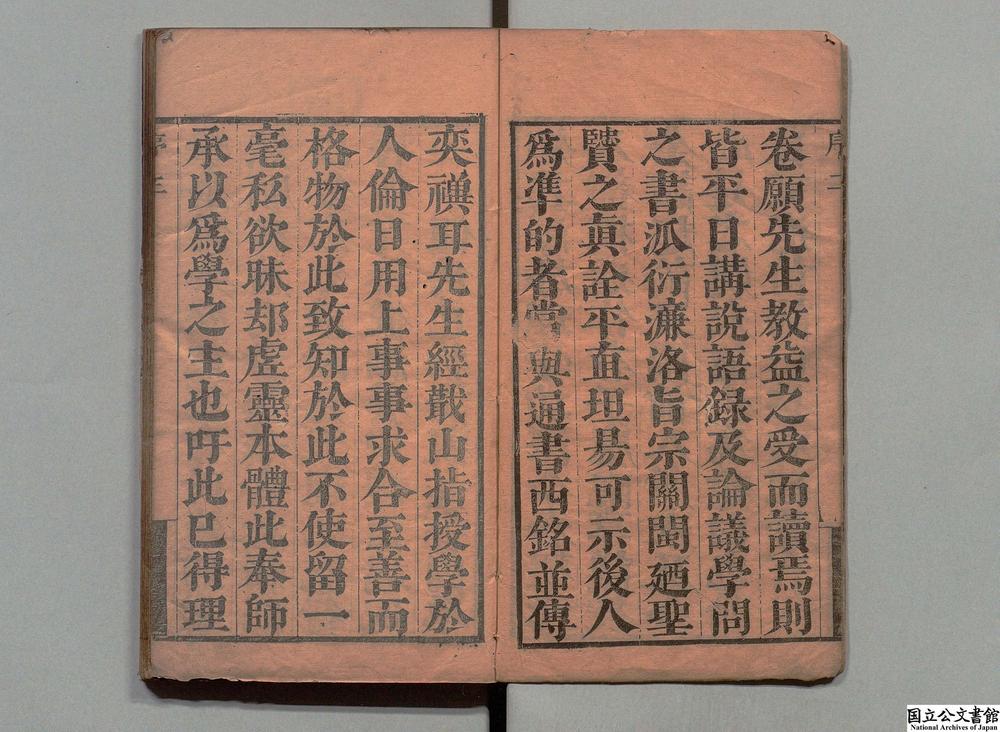 卷願先生教益之受而讀焉則
皆平日講說語録及論議學問
之書泒衍濂洛旨宗關閩廼聖
賢之眞詮平直坦易可示後人
爲準的者當與通書西銘並傳
奕禩耳先生經戢山指授學於
人倫日用上事事求合至善而
格物於此致知於此不使留一
毫私欲昧却虛靈本體此奉師
承以爲學之主也吁此已得理
国立公文書館
National Archives of Japan